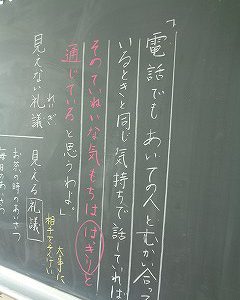 「電話でも あいての人とむかい合って
いるときと同じ気持ちで話していれば
そのていねいな気もちははきりと
通じていると思うわよ。」
大事に
相手で
れいぎ
見えない礼議
見える礼議
お茶の時のあいさつ
毎日のあいさつ